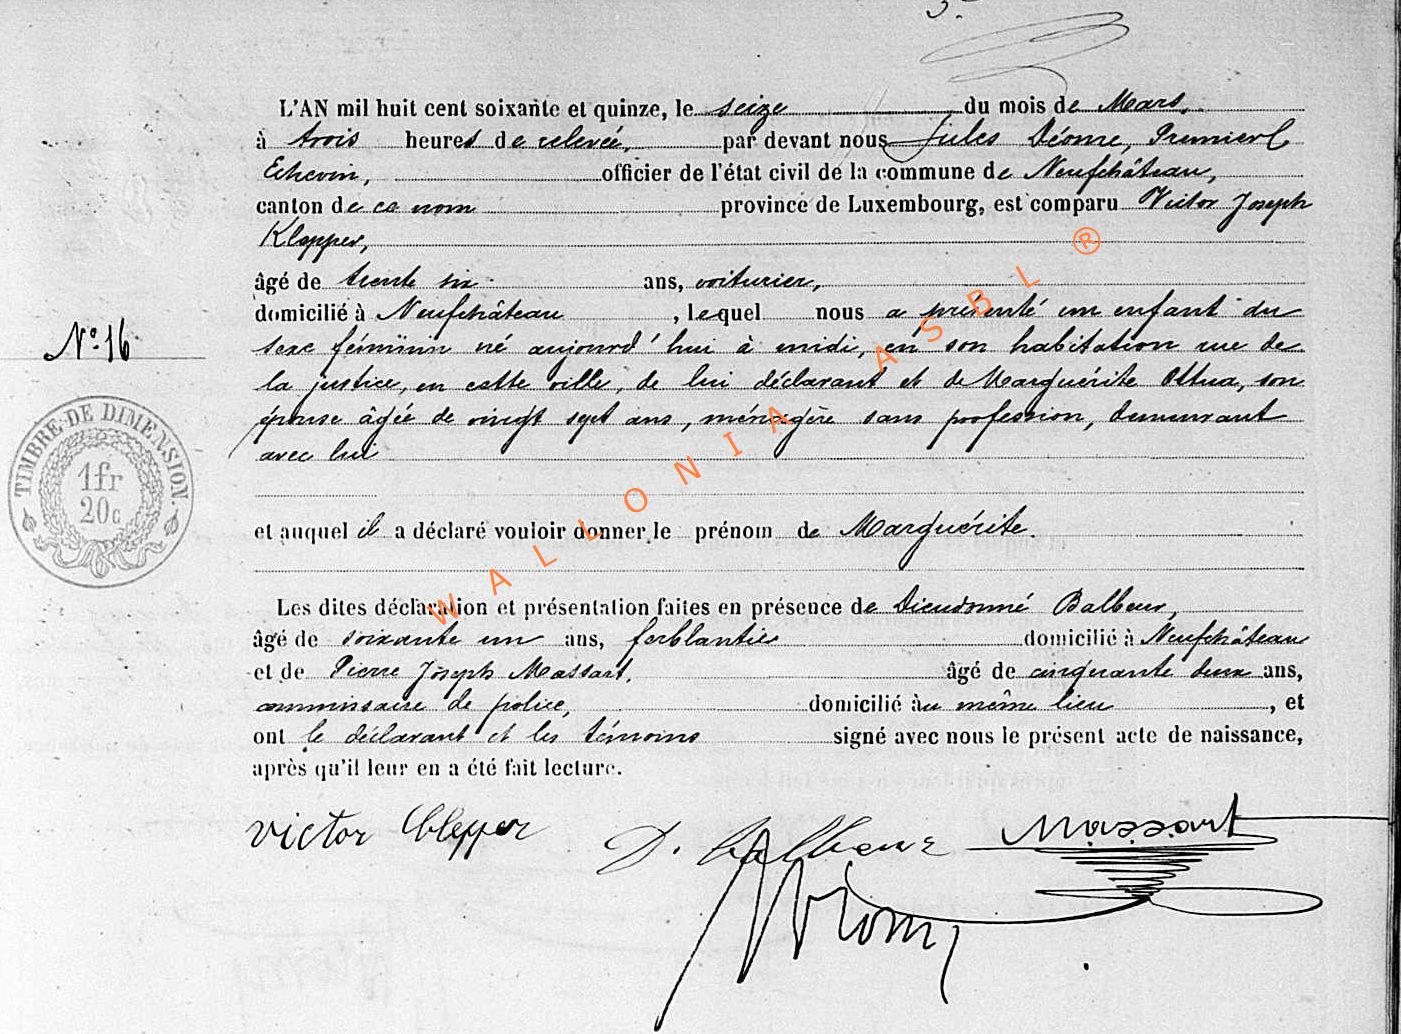 L'AN mil huit cent soixante et quinze, le seize du mois de Mars,
à trois heures de relevée, par devant nous Jules Déome, Premier
Echevin, officier de l'état civil de la commune de Neufchâteau,
canton de ce nom province de Luxembourg, est comparu Victor Joseph
Klepper,
âgé de trente six ans, voiturier,
domicilié à Neufchâteau, lequel nous a présenté un enfant du
sexe féminin né aujourd'hui à midi, en son habitation rue de
N° 16
la justice, en cette ville, de lui déclarant et de Marguérite Ottua, son
épouse âgée de vingt sept ans, ménagère sans profession, demeurant
avec lui
TIMBRE DE DIMENSION
1fr
20c
et auquel il a déclaré vouloir donner le prénom de Marguérite.
Les dites déclaration et présentation faites en présence de Dieudonné Balbeur,
âgé de soixante un ans, ferblantier domicilié à Neufchâteau
et de Pierre Joseph Massart, âgé de cinquante deux ans,
commissaire de police, domicilié au même lieu, et
ont le déclarant et les témoins signé avec nous le présent acte de naissance,
après qu'il leur en a été fait lecture.
victor Clepper D. Balbeur Massart
WALLONIA ASBL ®